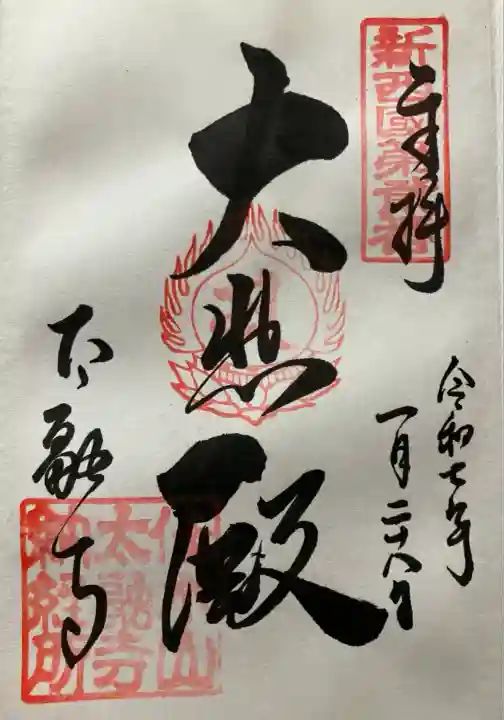 新西國第貳番
奉拝
令和七年
一月二十八日
大悲殿
太融寺
佳木山
太融寺
納経所